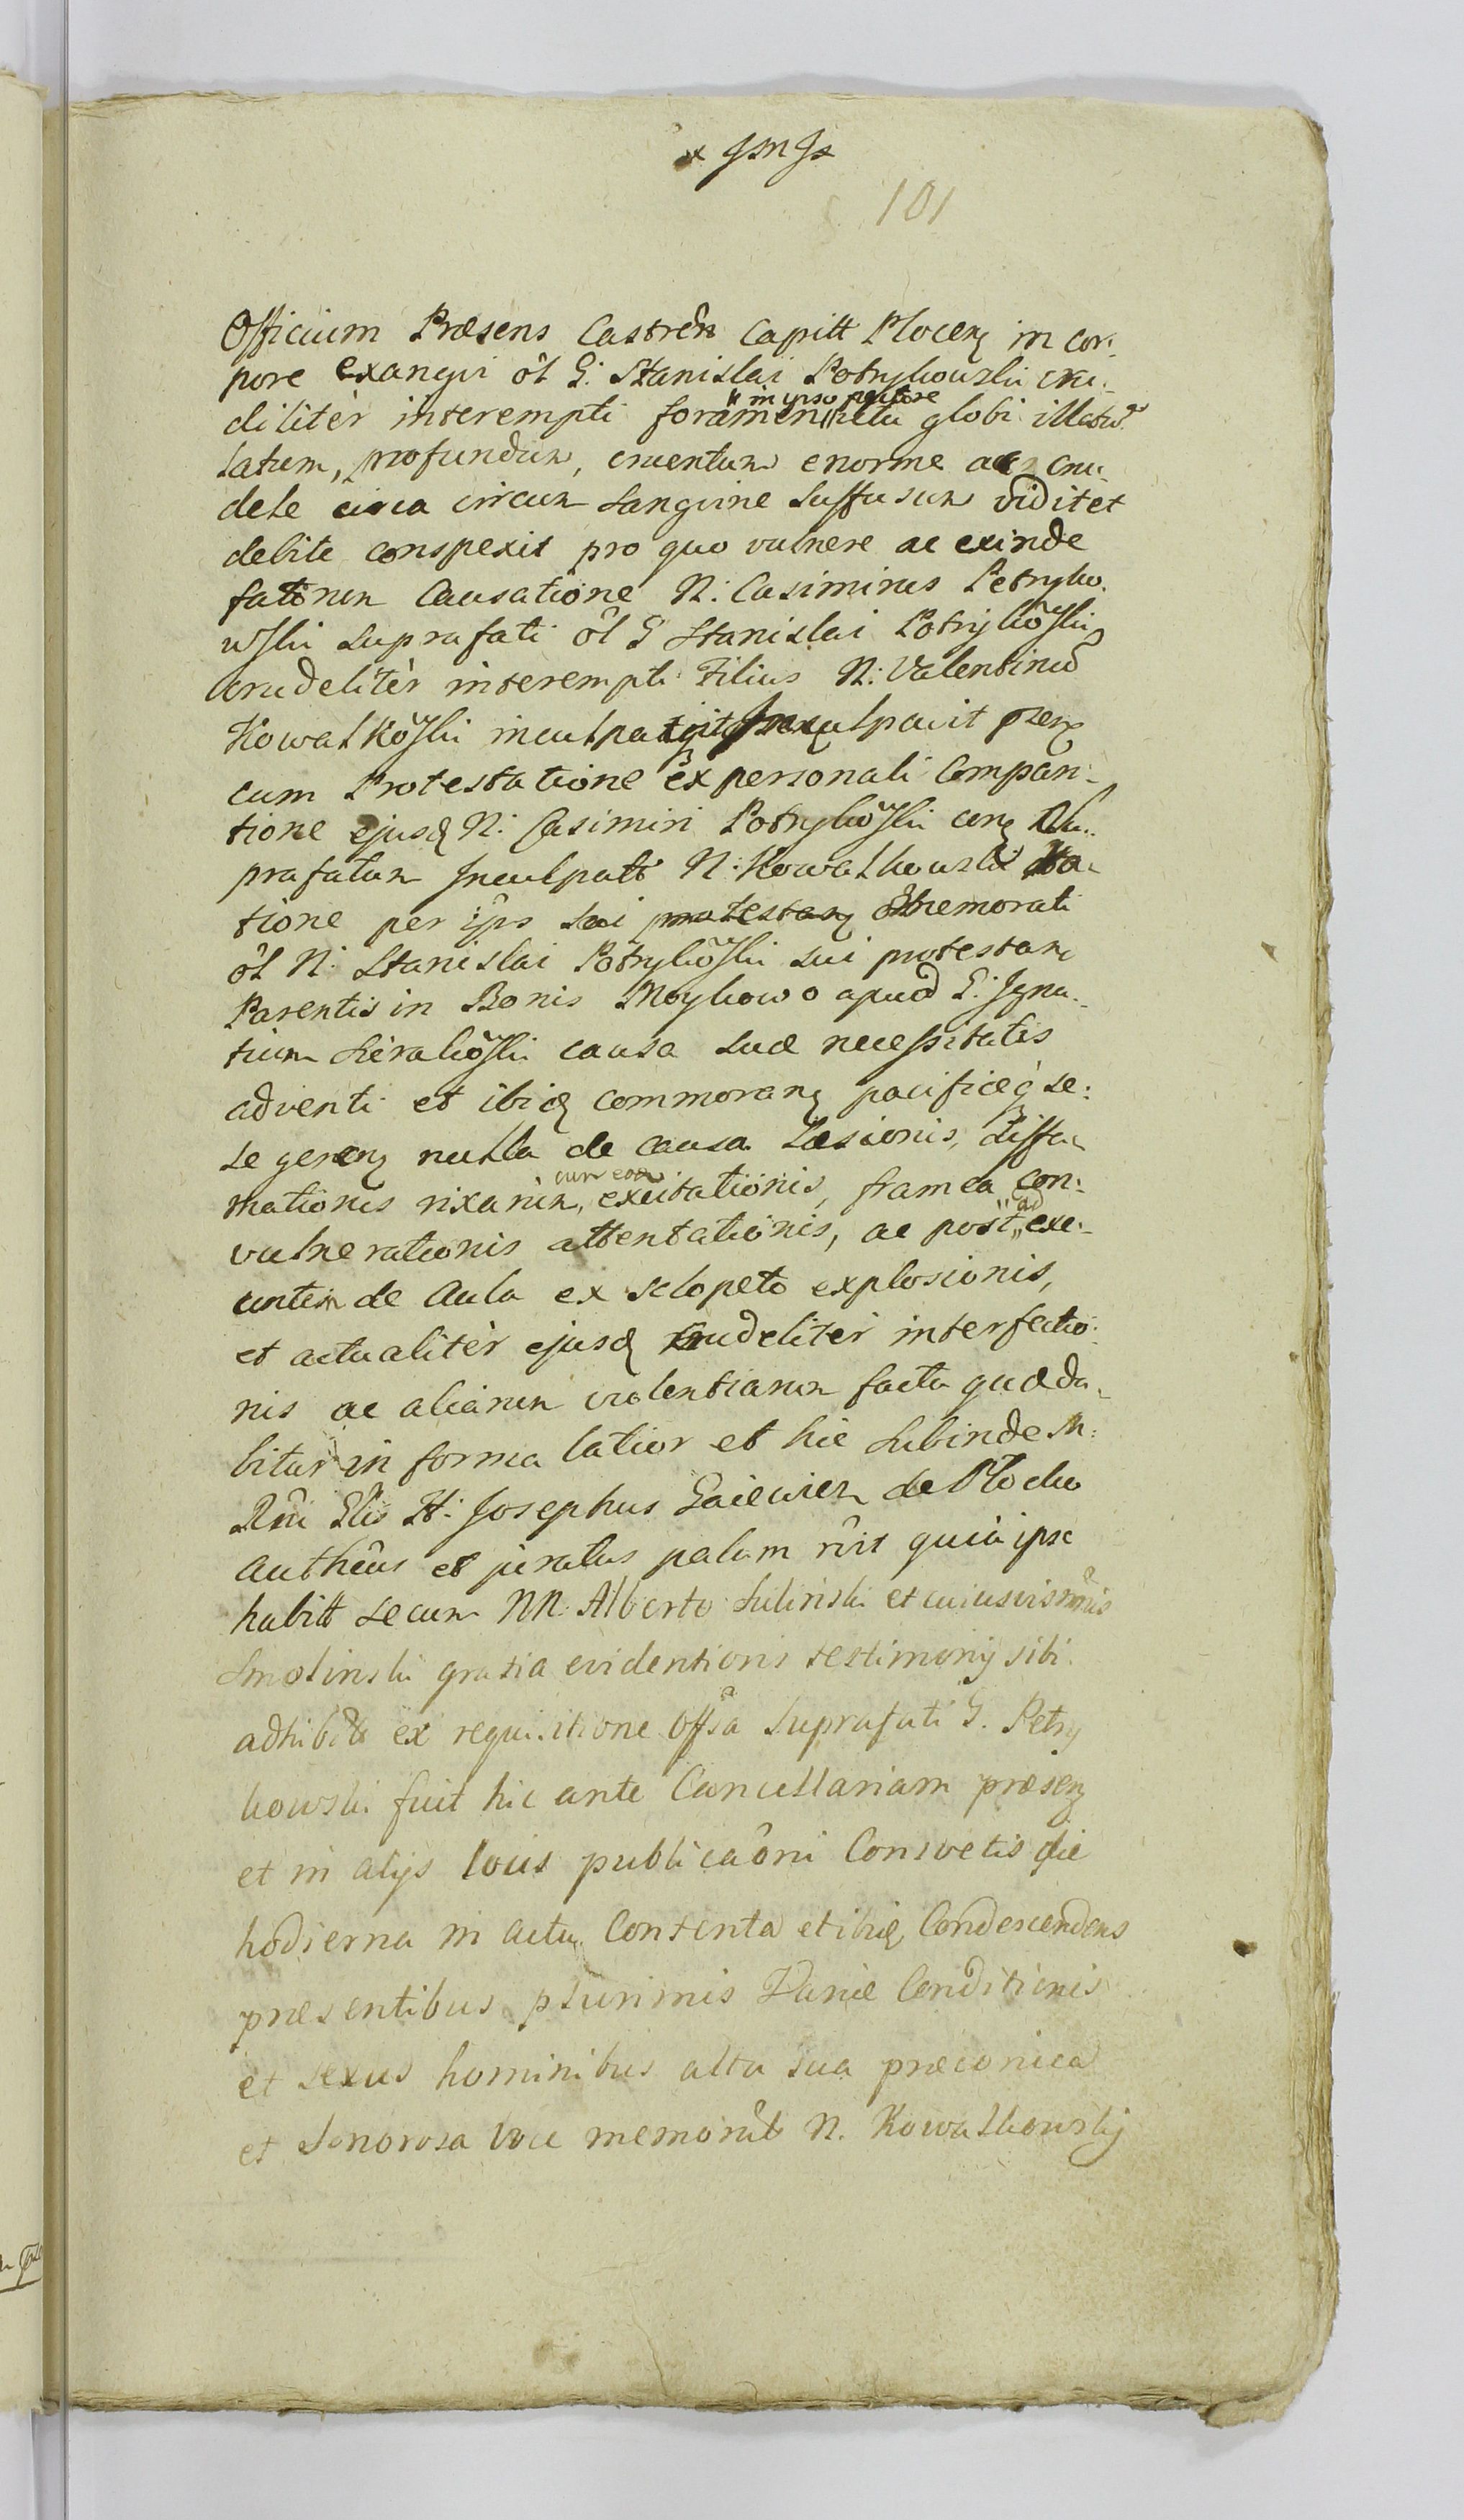 101
Officium Præsens Castren Capitt Plocen in cor:
pore exangvi ol G: Stanislai Potrykowski cru:
diliter interempti foramen "in ipso pectore ictu globi illatū
Latum, profundum, cruentum enorme ac cru:
dele circa circum Sangvine Suffusum vidit et
debite conspexit pro quo vulnere ac exinde
fatorum Causatione N: Casimirus Petryko:
wski suprafati ol G Stanislai Potrykōski
crudeliter interempti Filius N: Valentinū
Kowalkōski inculpavit Inculpavit
cum Protestatione ex personali Compari:
tione ejusd N: Casimiri Potrykōski
prafatum Inculpatt N: Kowalkowski
tione per ips sui memorati
ol N: Stanislai Potrykōski sui protestan
Parentis in Bonis Moykowo apud G: Igna:
tium Sierakōski causa suæ necessitatis
adventi et ibid commoran pacificeq se:
se geren nulla de causa Læsionis, diffa:
mationis rixarum, cum eod excitationis, framea con:
vulnerationis attentationis, ac post "ad exe:
untem de Aula ex sclopeto explosionis,
et actualiter ejusd crudeliter interfectio:
nis ac aliarum violentiarum facta quæ da:
bitur in forma latior et hic Subinde M:
Rni Glis It: Josephus Gaiewicz de Plocko
Authēus et juratus palam rūit quia ipse
habitt secum NN. Alberto Sulinski et
Smolinski gratia evidentioris testimonij sibi
adhibitt ex requisitione Offsa Suprafati G. Petry
kowski fuit hic ante Cancellariam præsen
et in alijs locis publicaōni Consvetis die
hodierna in actu Contenta et ibid Condescendens
præsentibus plurimis Variæ Conditionis
et sexus hominibus alta sua præconica
et Sonorosa voce memorāt N. Kowalkowskij